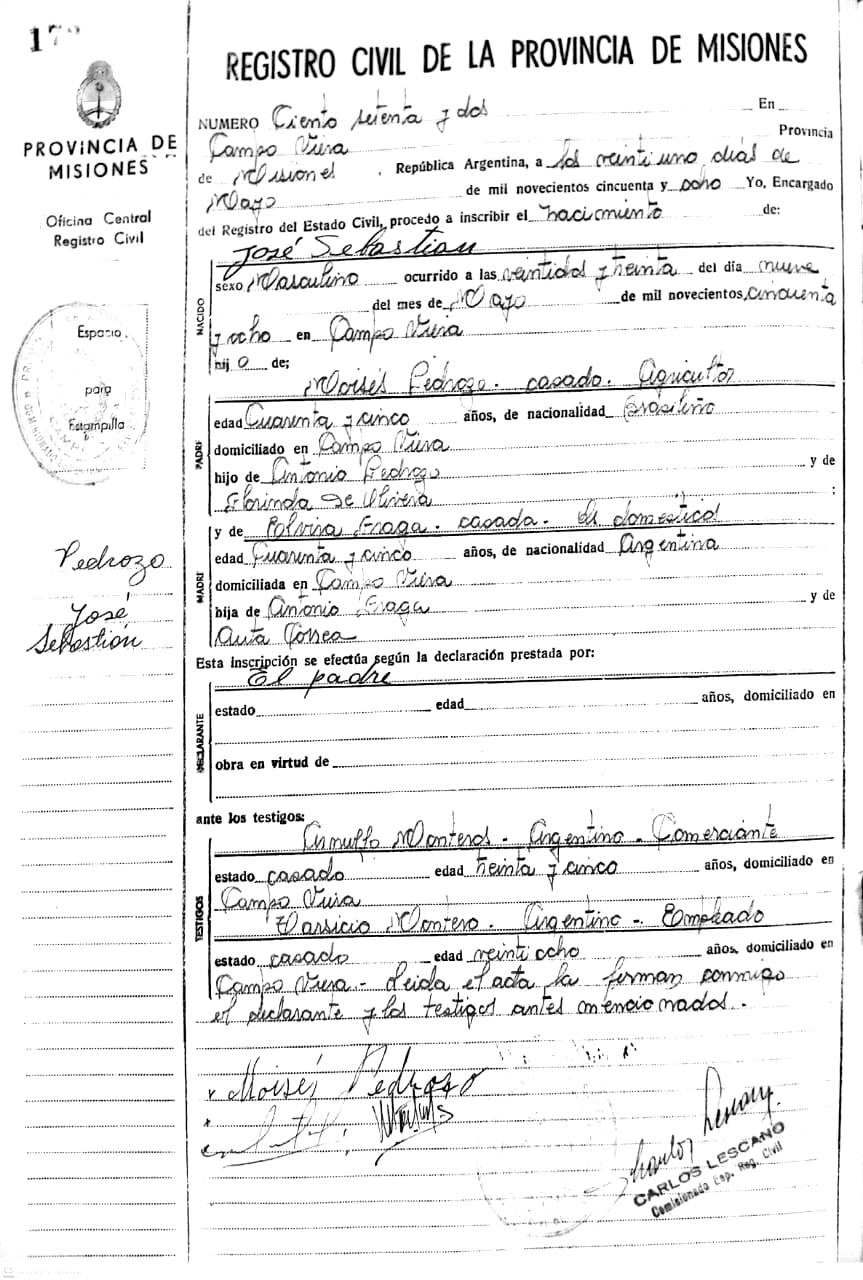 17
PROVINCIA DE
MISIONES
Oficina Central
Registro Civil
Espacio
para
Estampilla
Pedrozo
José
Sebastián
REGISTRO CIVIL DE LA PROVINCIA DE MISIONES
NUMERO Ciento setenta y dos En
Campo Viera Provincia
de Misiones, República Argentina, a los veintiuno días de
Mayo de mil novecientos cincuenta y ocho Yo, Encargado
del Registro del Estado Civil, procedo a inscribir el nacimiento de:
José Sebastian
NACIDO
sexo Masculino ocurrido a las veintidos y treinta del día nueve
del mes de Mayo de mil novecientos, cincuenta
y ocho en Campo Viera
hij o de;
Moisés Pedrozo. casado. Agricultor
PADRE
edad Cuarenta y cinco años, de nacionalidad Brasileño
domiciliado en Campo Viera
hijo de Antonio Pedrozo y de
Florinda De Olivera ;
y de Fraga. casada. domésticos
MADRE
edad Cuarenta y cinco años, de nacionalidad Argentina
domiciliada en Campo Viera
hija de Antonio Fraga y de
Correa
Esta inscripción se efectúa según la declaración prestada por:
El padre
DECLARANTE
estado edad años, domiciliado en
obra en virtud de
ante los testigos:
Arnulfo Monteros - Argentino - Comerciante
TESTIGOS
estado casado edad treinta y cinco años, domiciliado en
Campo Viera
Tarsicio Montero. Argentino - Empleado
estado casado edad veinti ocho años, domiciliado en
Campo Viera - Leida el acta la firman conmigo
el declarante y los testigos antes mencionados.
Moisés Pedrozo
Carlos Lescano
CARLOS LESCANO
Comisionado Esp. Reg. Civil